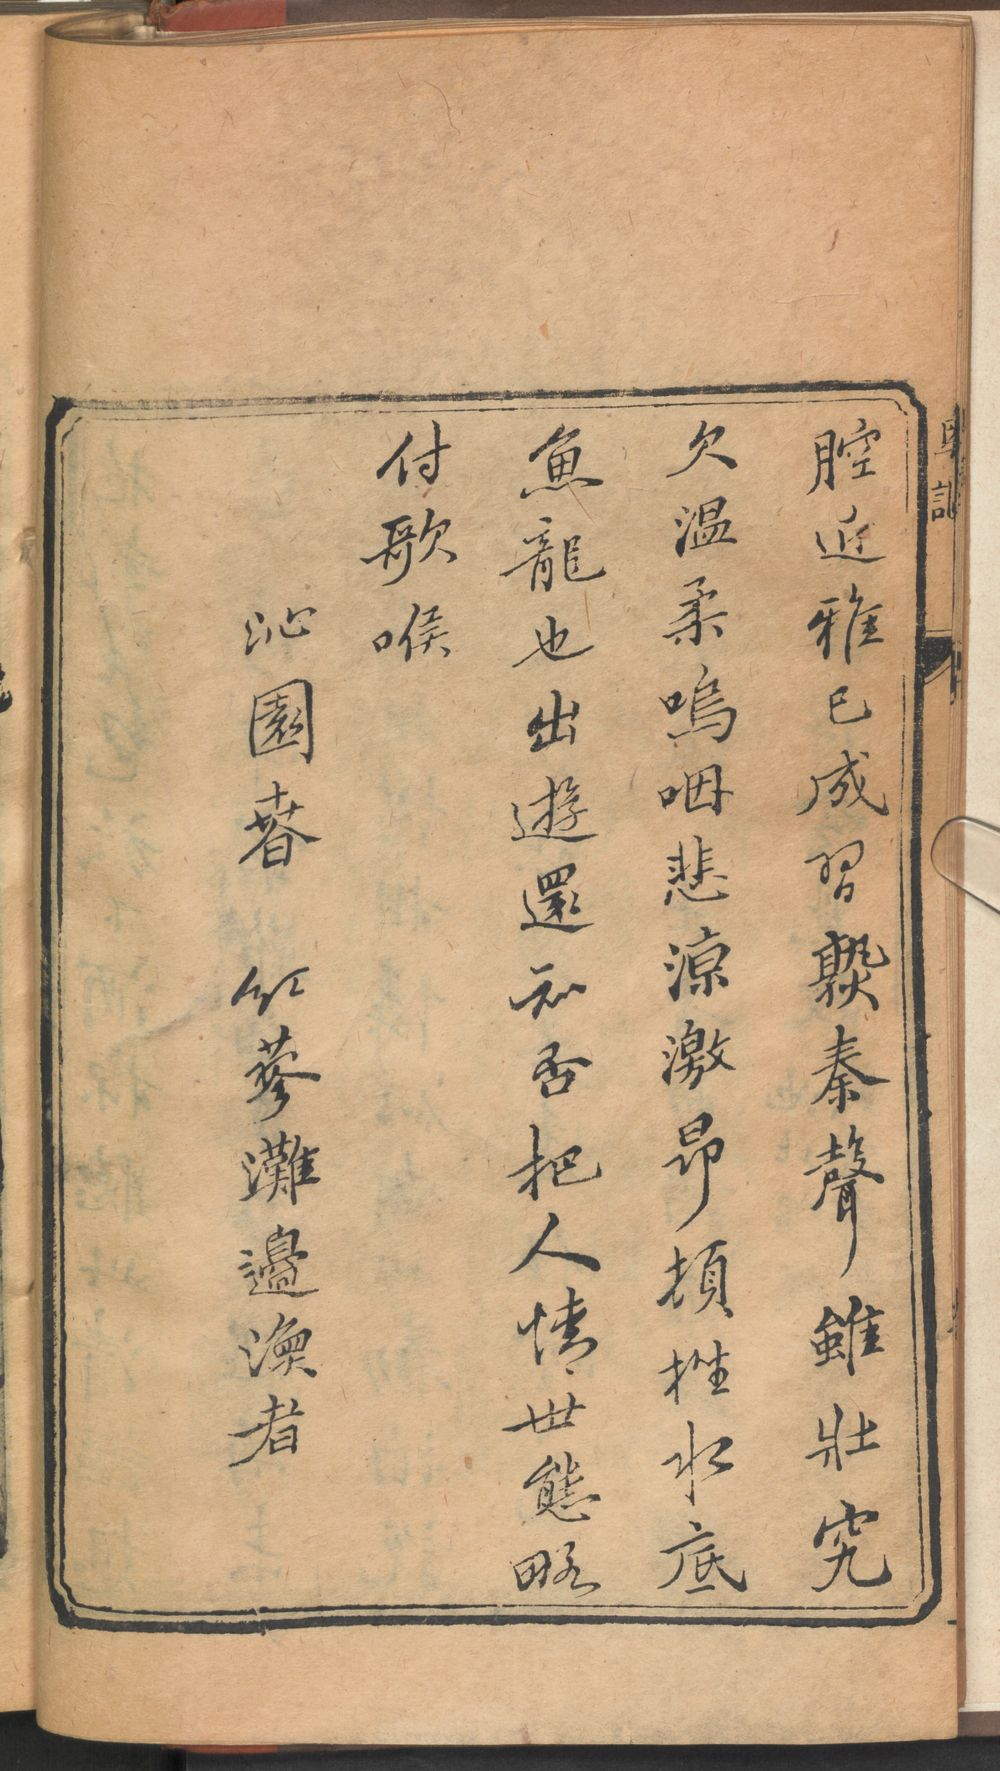 腔近雅已成習褻秦聲雖壯究
欠溫柔嗚咽悲涼激昂頓挫水底
魚龍也出遊還知否把人情世態略
付歌喉
沁園春　紅蓼灘邊漁者